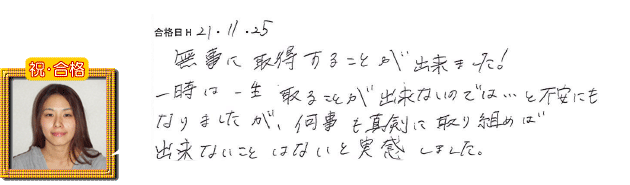 合格日 H 21.11.25
祝・合格
無事に取得することが出来ました!
一時は一生取ることが出来ないのでは…と不安にも
なりましたが、何事も真剣に取り組めば
出来ないことはないと実感しました。